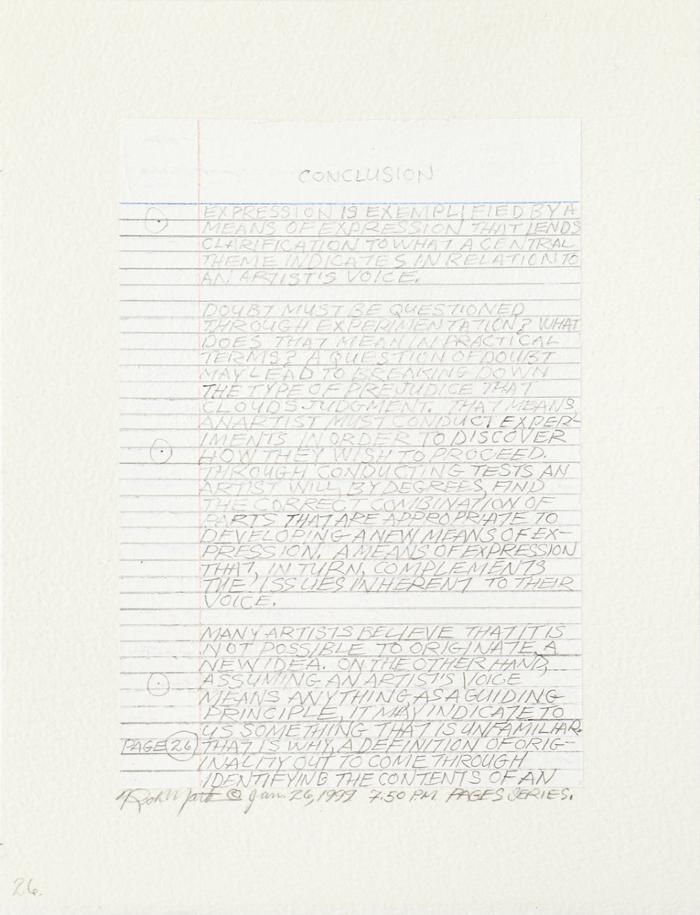 CONCLUSION
EXPRESSION IS EXEMPLIFIED BY A
MEANS OF EXPRESSION THAT LENDS
CLARIFICATION TO WHAT A CENTRAL
THEME INDICATES IN RELATION TO
AN ARTIST'S VOICE.
DOUBT MUST BE QUESTIONED
THROUGH EXPERIMENTATION? WHAT
DOES THAT MEAN IN PRACTICAL
TERMS? A QUESTION OF DOUBT
MAY LEAD TO BREAKING DOWN
THE TYPE OF PREJUDICE THAT
CLOUDS JUDGMENT. THAT MEANS
AN ARTIST MUST CONDUCT EXPER-
IMENTS IN ORDER TO DISCOVER
HOW THEY WISH TO PROCEED.
THROUGH CONDUCTING TESTS AN
ARTIST WILL BY DEGREES, FIND
THE CORRECT COMBINATION OF
PARTS THAT ARE APPROPRIATE TO
DEVELOPING A NEW MEANS OF EX-
PRESSION. A MEANS OF EXPRESSION
THAT, IN TURN, COMPLEMENTS
THE ISSUES INHERENT TO THEIR
VOICE.
MANY ARTISTS BELIEVE THAT IT IS
NOT POSSIBLE TO ORIGINATE A
NEW IDEA. ON THE OTHER HAND,
ASSUMING AN ARTIST'S VOICE
MEANS ANYTHING AS A GUIDING
PRINCIPLE, IT MAY INDICATE TO
US SOMETHING THAT IS UNFAMILIAR.
PAGE 26 THAT IS WHY, A DEFINITION OF ORIG-
INALITY OUT TO COME THROUGH
IDENTIFYING THE CONTENTS OF AN
© Jan. 26, 1999 7:50 P.M. PAGES SERIES.
26.